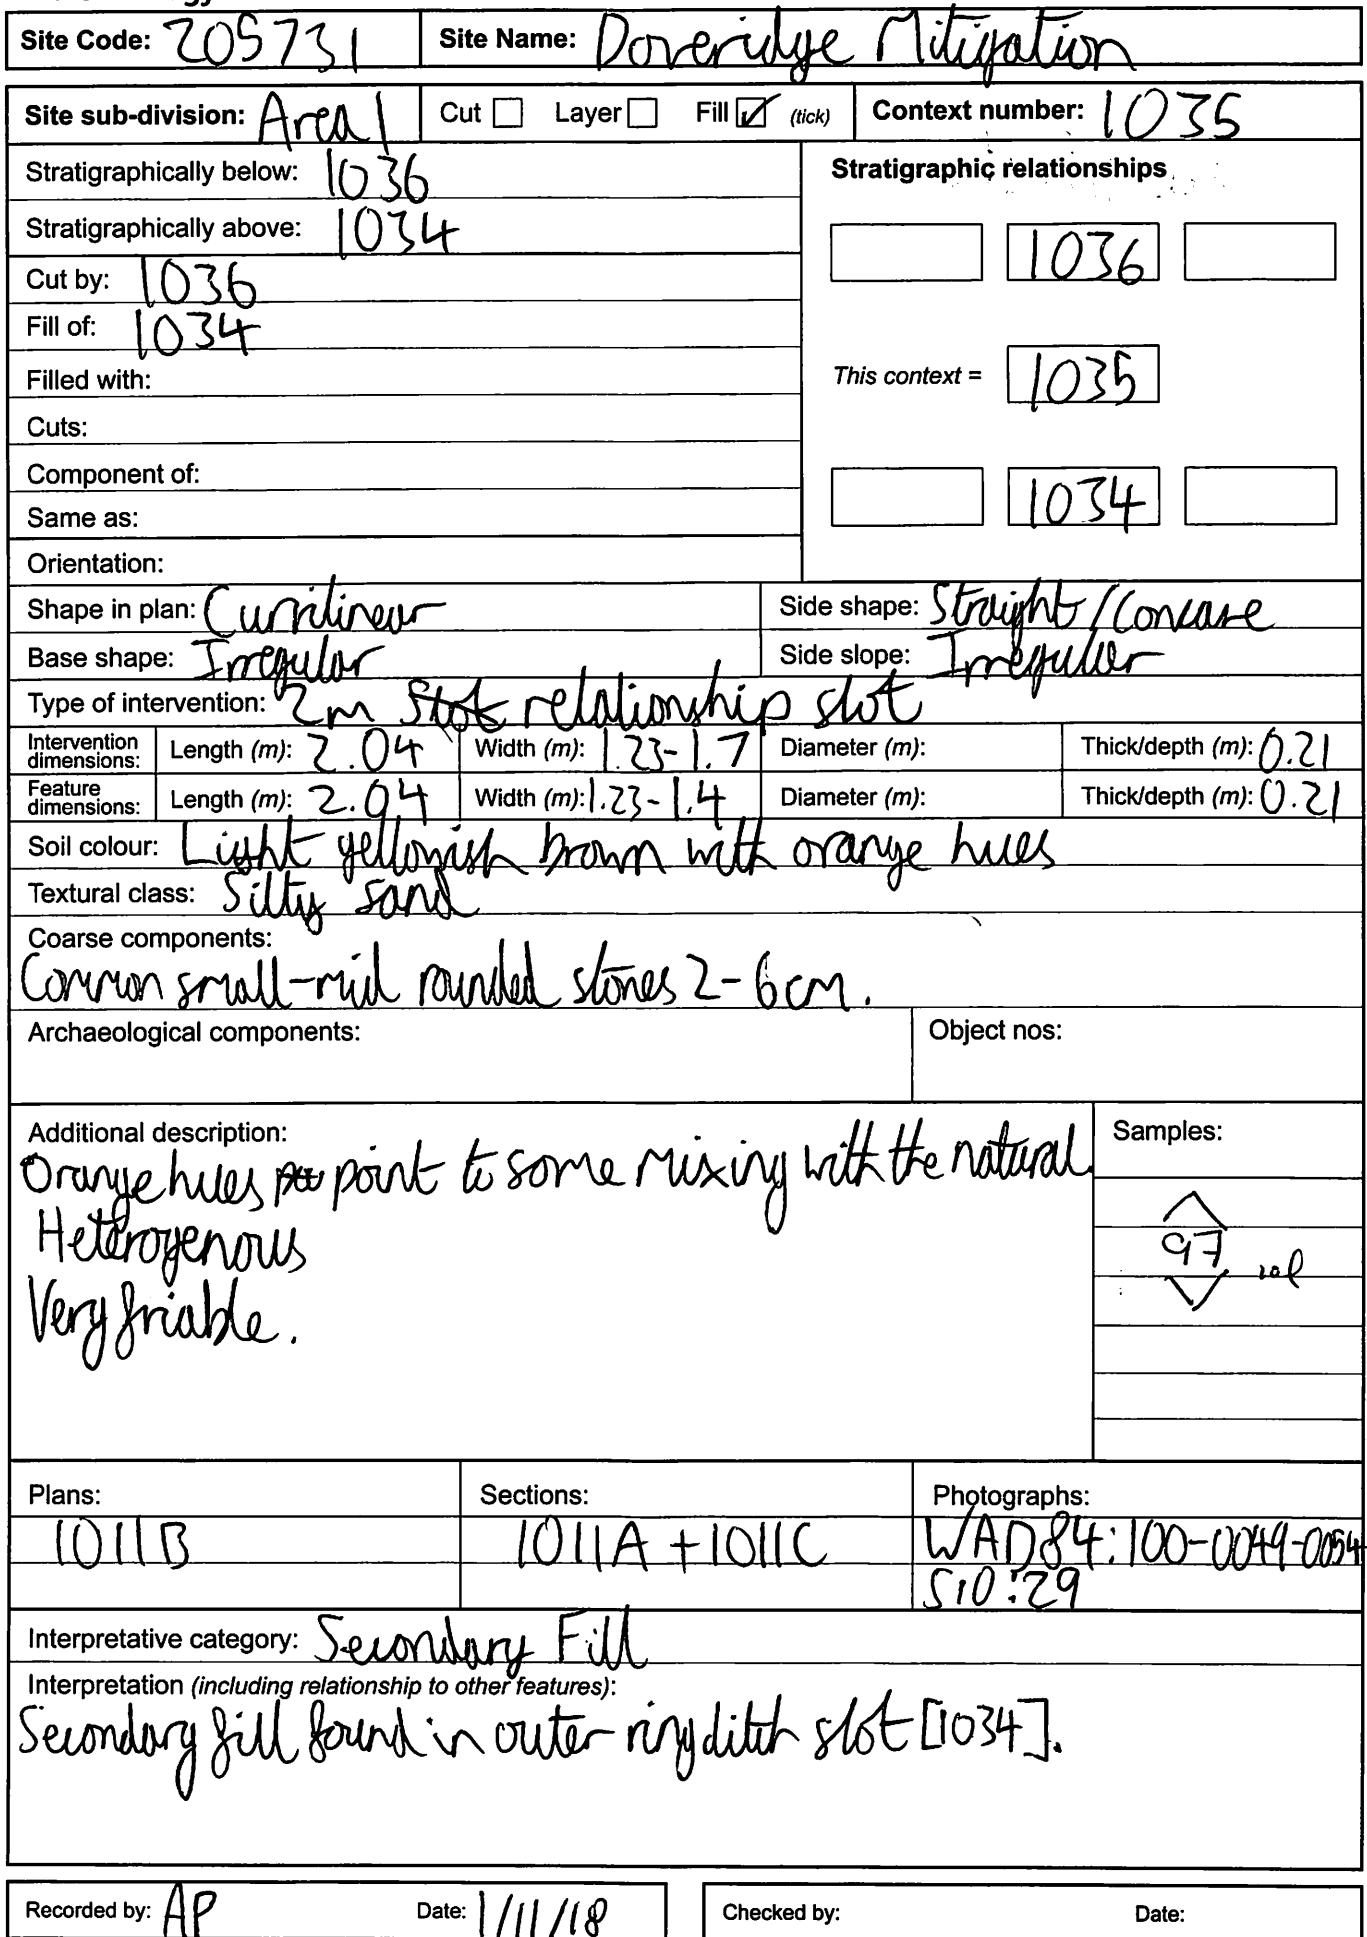 Site Code: 205731 Site Name: Doveridge Mitigation
Site sub-division: Area 1 Cut Layer Fill (tick) Context number: 1035
Stratigraphically below: 1036
Stratigraphic relationships
Stratigraphically above: 1034
1036
Cut by: 1036
Fill of: 1034
Filled with:
This context = 1035
Cuts:
Component of:
1034
Same as:
Orientation:
Shape in plan: Curvilinear Side shape: Straight/Concave
Base shape: Irregular Side slope: Irregular
Type of intervention: 2m relationship slot
Intervention dimensions: Length (m): 2.04 Width (m): 1.23-1.7 Diameter (m): Thick/depth (m): 0.21
Feature dimensions: Length (m): 2.04 Width (m): 1.23-1.4 Diameter (m): Thick/depth (m): 0.21
Soil colour: Light yellowish brown with orange hues
Textural class: Silty sand
Coarse components:
Common small-mid rounded stones 2-6cm.
Archaeological components: Object nos:
Additional description: Samples:
Orange hues point to some mixing with the natural.
Heterogenous
97
Very friable.
Plans: Sections: Photographs:
1011B 1011A + 1011C WAD84:100-0049-0054
S10:29
Interpretative category: Secondary Fill
Interpretation (including relationship to other features):
Secondary fill found in outer ring ditch slot [1034].
Recorded by: AP Date: 1/11/18 Checked by: Date: